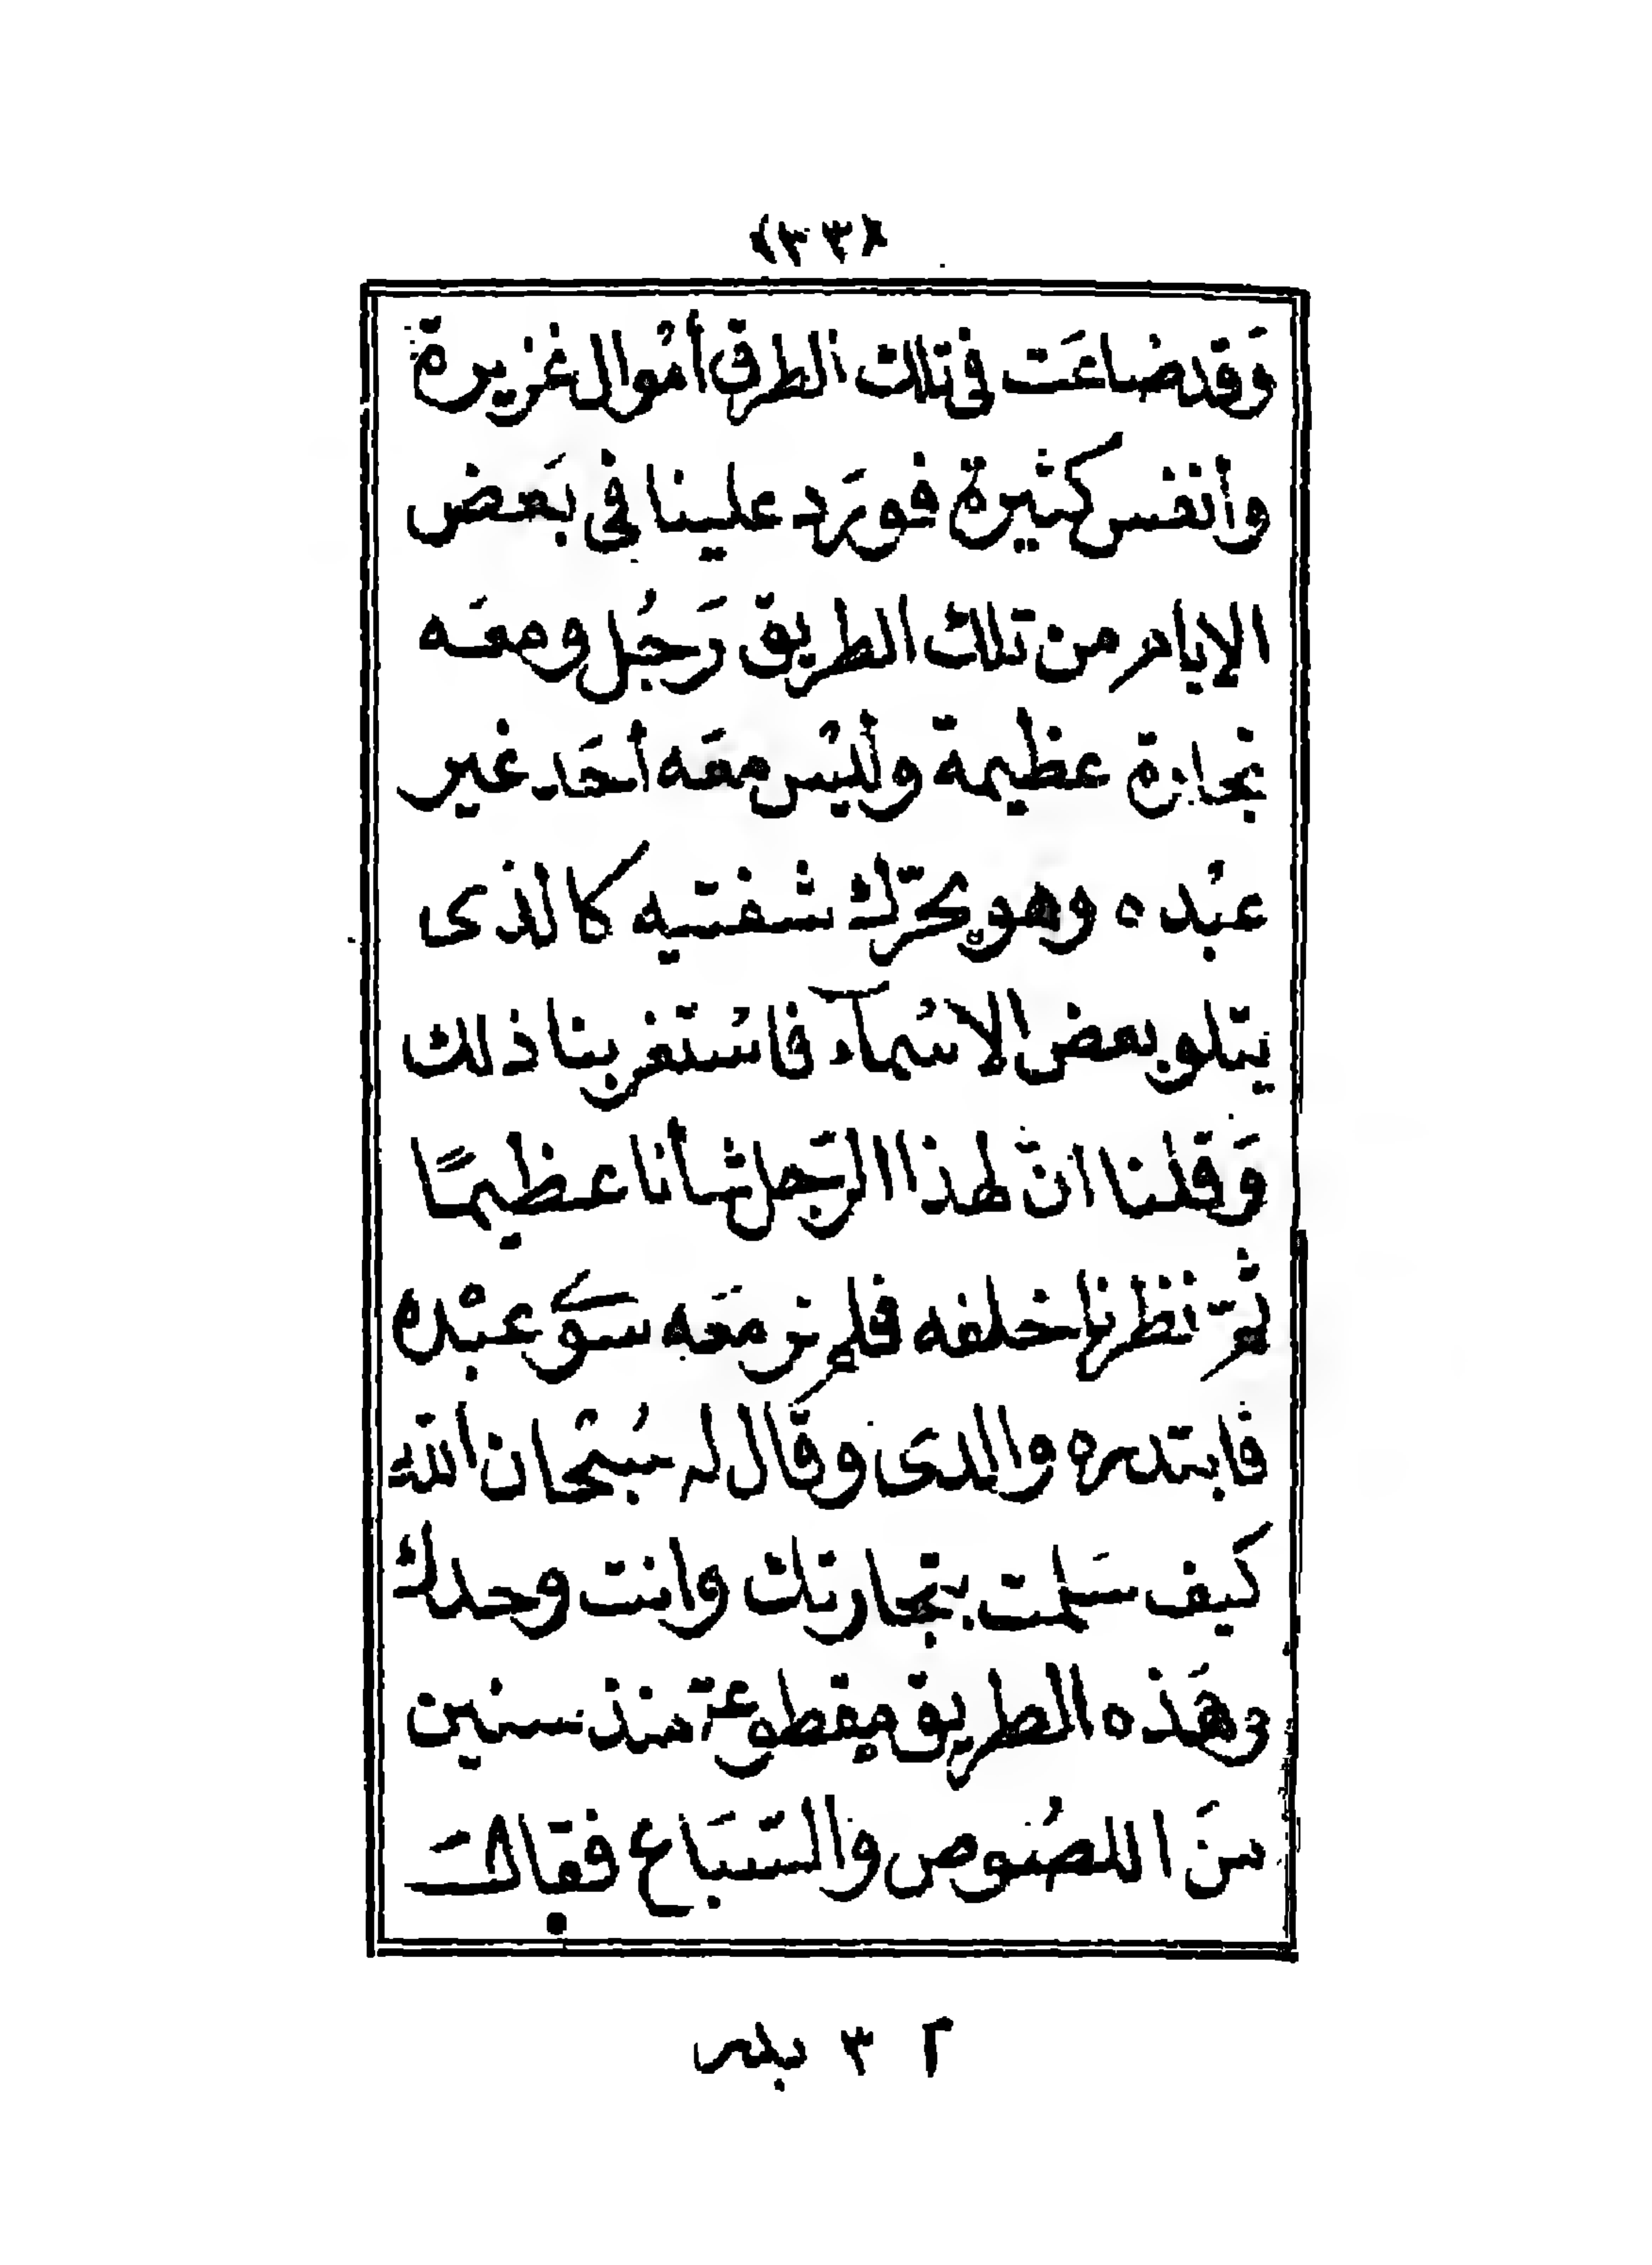 (٣٣)
وَقد ضاعَت فى تلك الطرق أمْوال غزيرة
وأنفس كثيرة فورَد علينا فى بَعض
الايام من تلك الطريق رَجُل ومعَه
تجارة عظيمة ولَيْس معَه أحَد غير
عبْده وهو يحرّك شفتيه كالذى
يتلو بعض الاسْمآء فاسْتغربنا ذلك
وَقلنا انّ لهذا الرّجل شأنا عظيمًا
ثمّ نظرنا خلفه فلم نر معَه سوَى عبْده
فابتدره والدى وقال له سُبْحان الله
كيف سَلمت بتجارتك وانت وحدك
وهَذه الطريق مقطوعة منذ سنين
منَ اللصُوص والسّبَاع فقالَ
٣ بدر